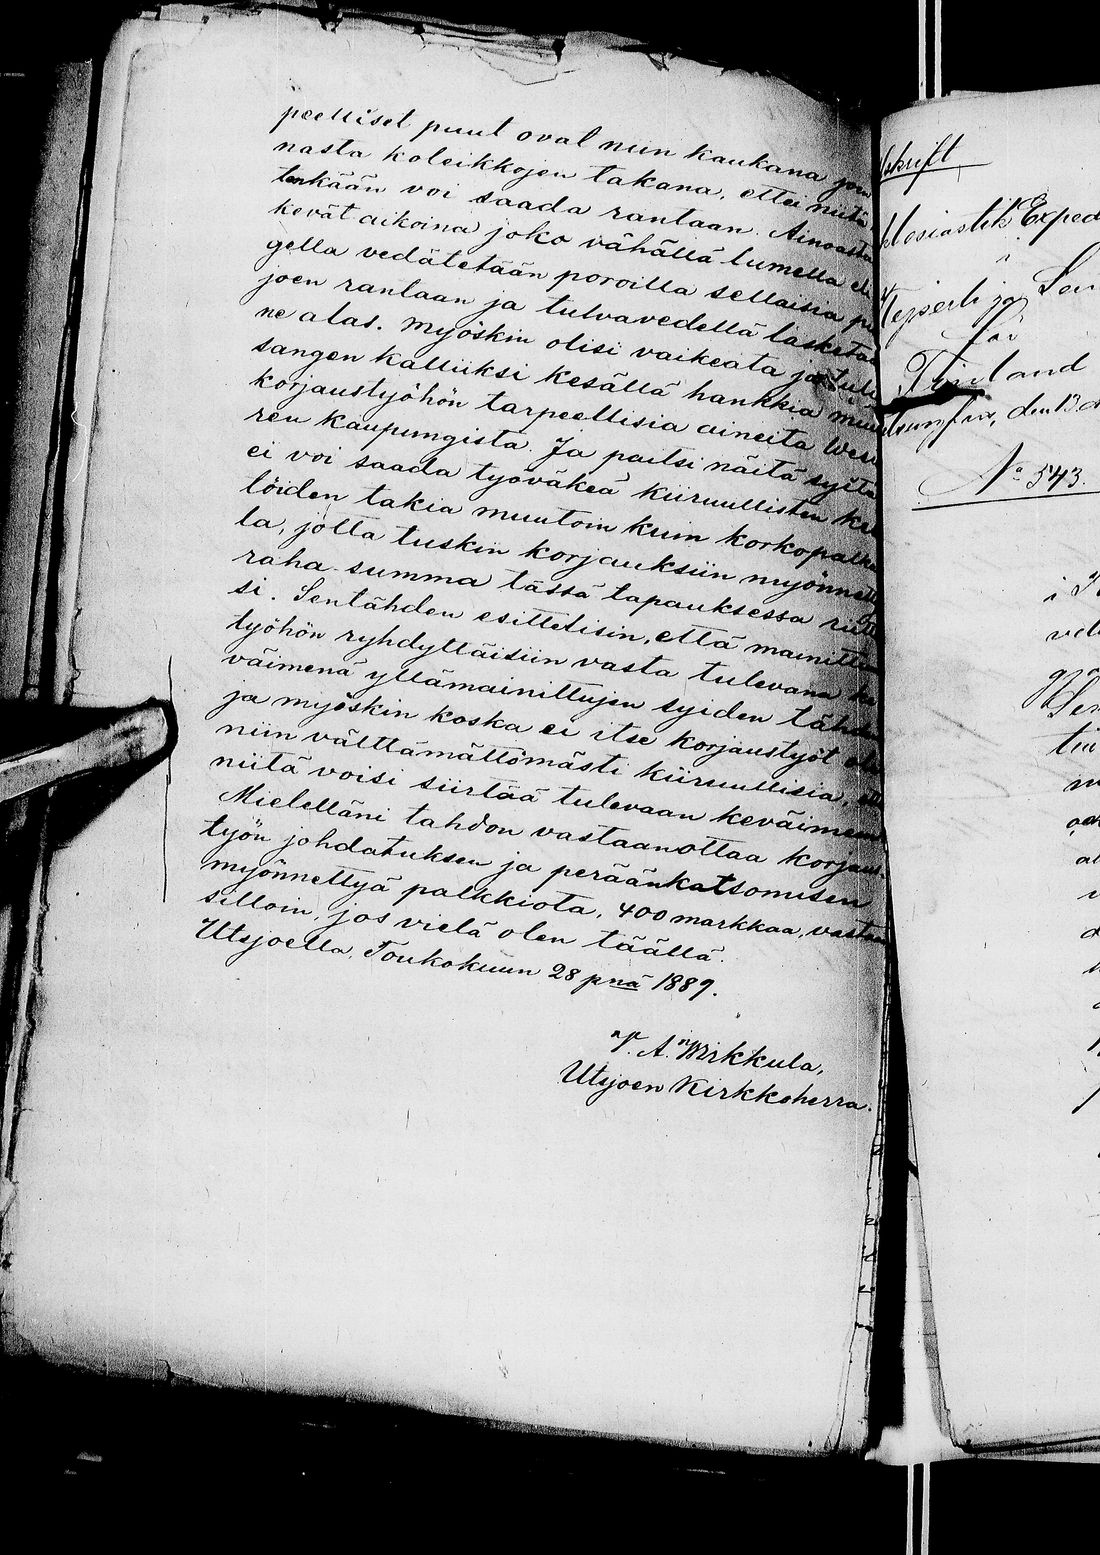 peelliset puut ovat niin kaukana joen
nasta koleikkojen takana, ettei niitä
tenkään voi saada rantaan. Ainoasta
kevät aikoina joko vähällä lumella eli
gella vedätetään poroilla sellaisia pu
joen rantaan ja tulvavedellä lasketaa
ne alas. myöskin olisi vaikeata ja tuli
sangen kalliiksi kesällä hankkia muu
korjaustyöhön tarpeellisia aineita Wes
ren kaupungista. Ja paitsi näitä syitä
ei voi saada työväkeä kiiruullisten ke
löiden takia muutoin kuin korkopalka
la, jolla tuskin korjauksiin myönnett
raha-summa tässä tapauksessa riitt
si. Sentähden esittelisin, että mainittu
työhön ryhdyttäisiin vasta tulevana ke
väimenä yllämainittujen syiden tähd
ja myöskin koska ei itse korjaustyöt ole
niin välttämättömästi kiiruullisia, ett
niitä voisi siirtää tulevaan keväimeen
Mielelläni tahdon vastaanottaa korjaus-
työn johdatuksen ja peräänkatsomisen
myönnettyä palkkiota, 400 markkaa, vastaa
silloin, jos vielä olen täällä.
Utsjoella, Toukokuun 28 pnä 1889.
V. A. Wirkkula,
Utsjoen Kirkkoherra.
skrift
klesiastik Exped
Kejserliga Sen
för
Finland
lsingfors, den 13 d
No 543.